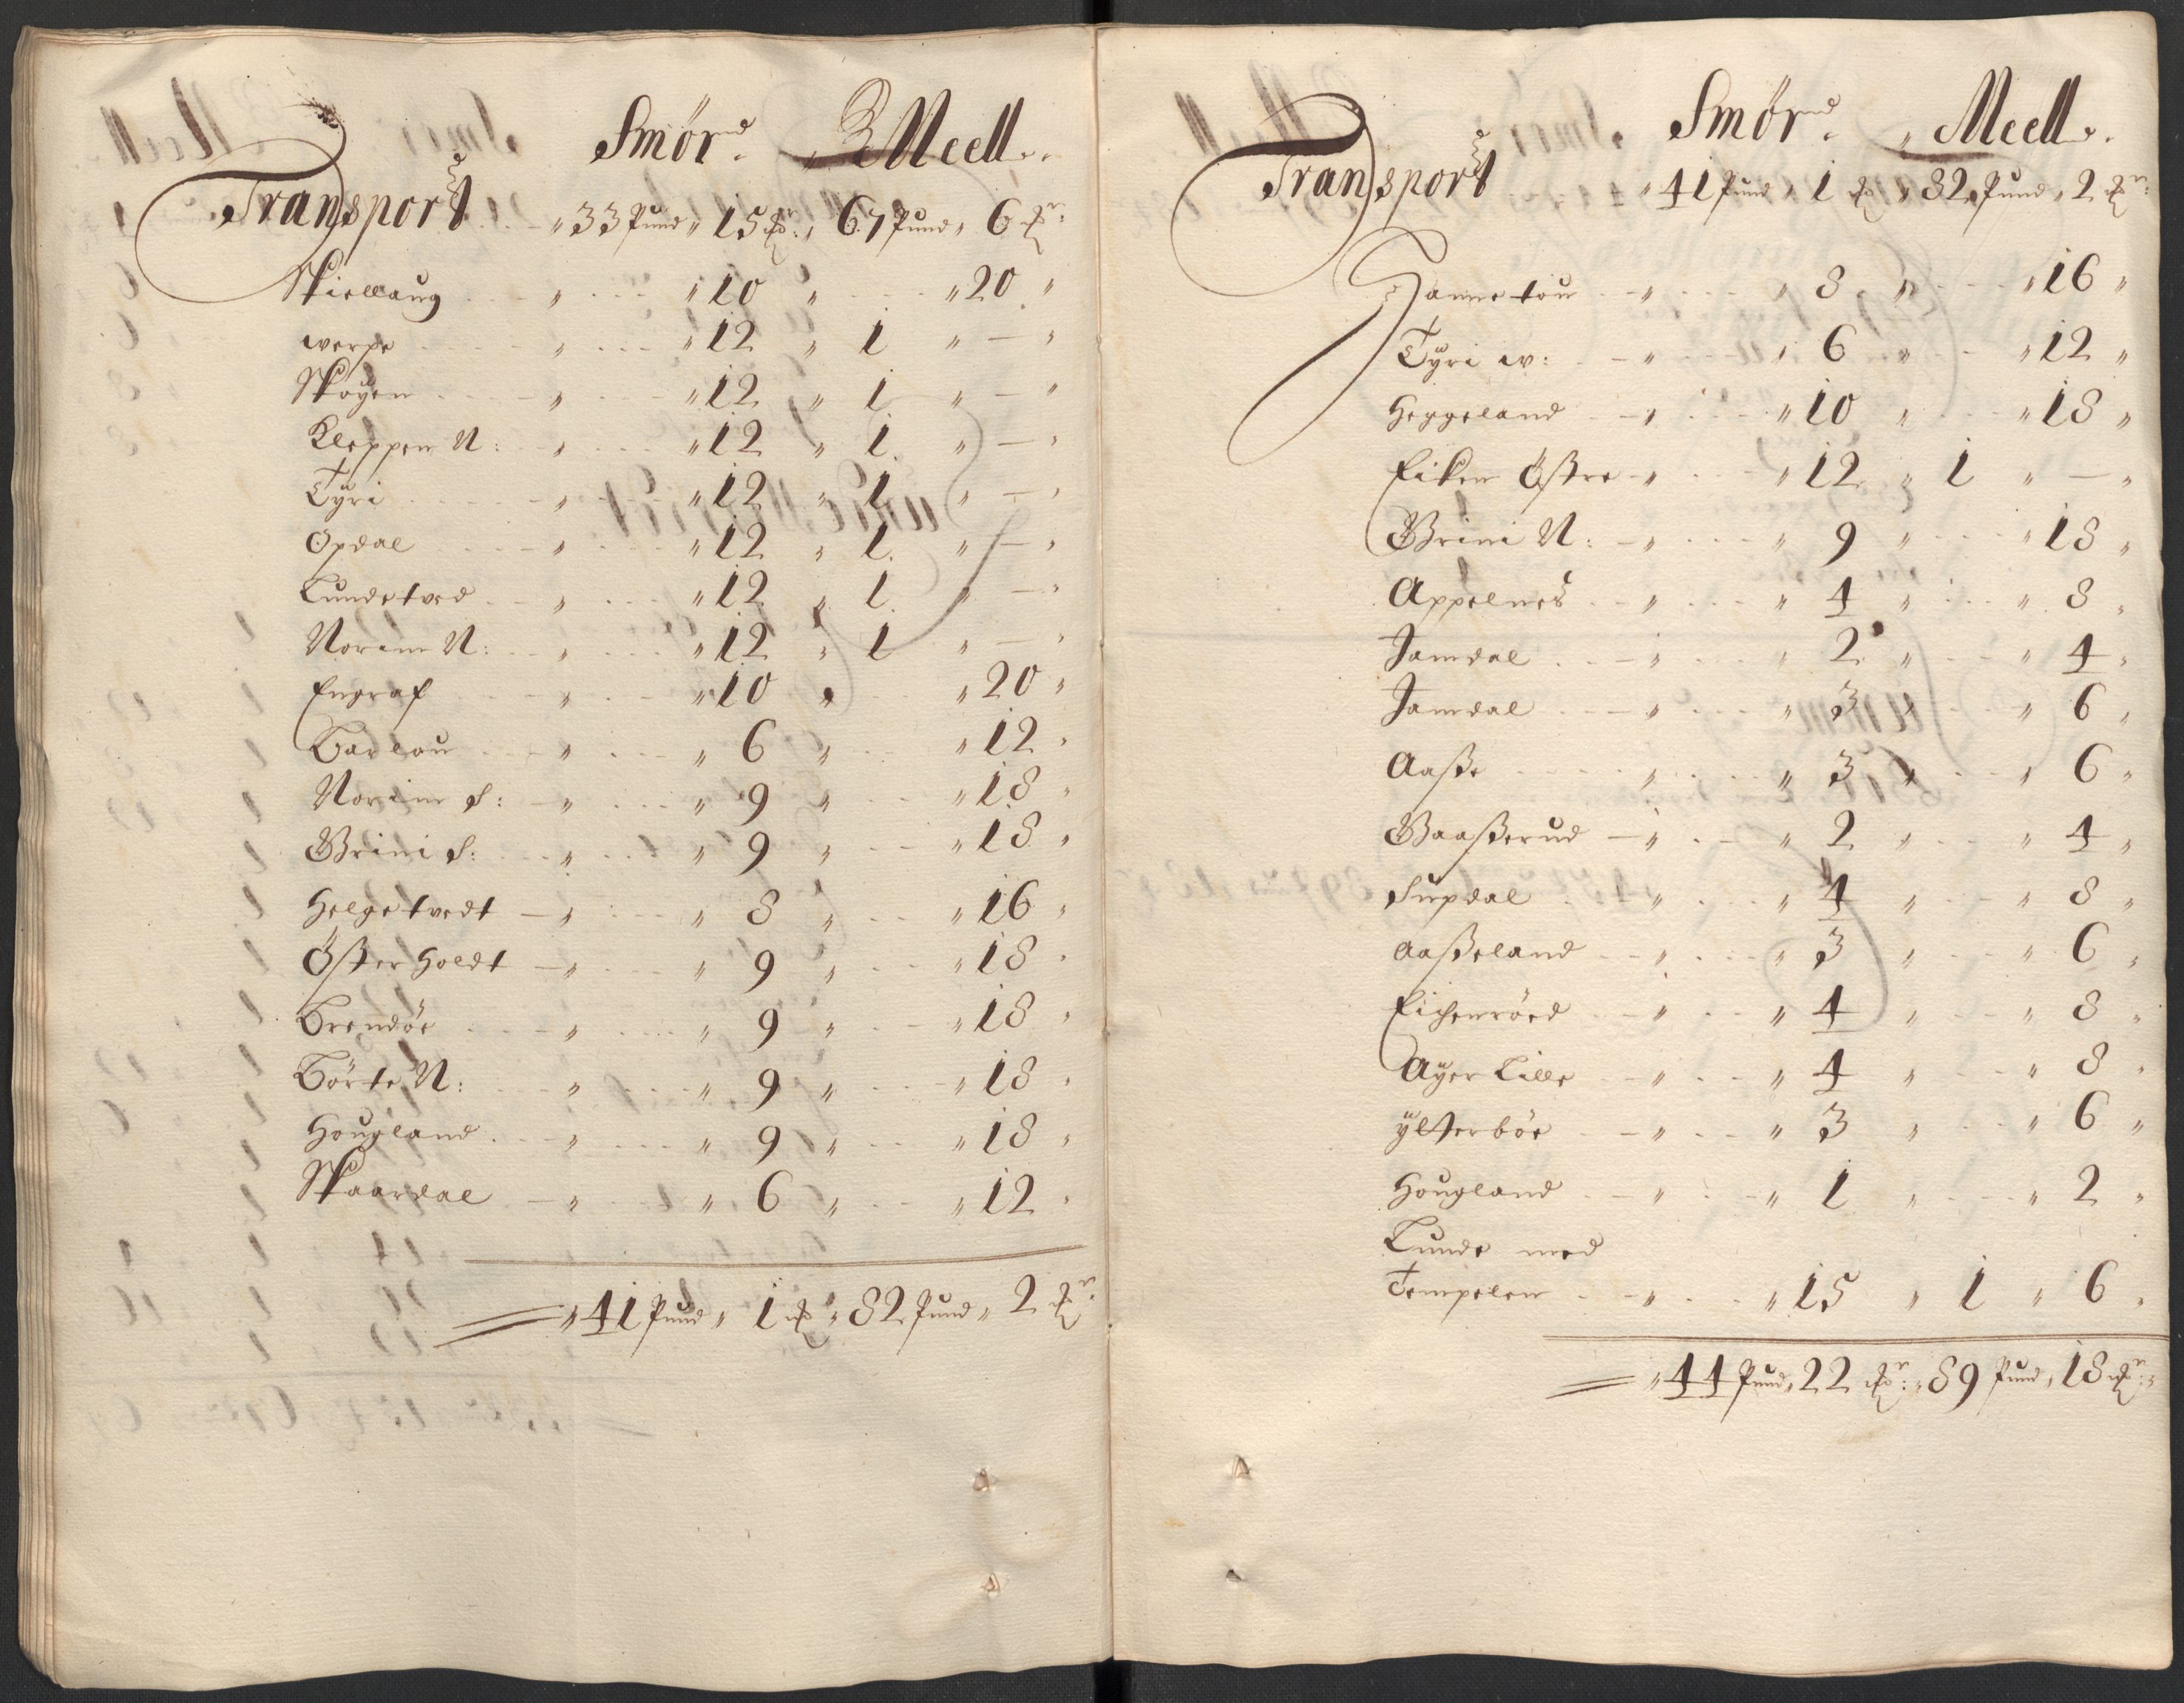 Smör. Meell.
Transport 33 Pund 15 67 Pund 6
Skiellaug 10 20
werpe 12 1 —
Skoÿen 12 1 —
Kleppen N: 12 1 —
Tÿri 12 1 —
Opdal 12 1 —
Lundetved 12 1 —
Norim N: 12 1 —
Engraf 10 20
Barlou 6 12
Norim S: 9 18
Brini S: 9 18
Helgetvedt 8 16
Österholdt 9 18
Brendöe 9 18
Börte N: 9 18
Hougland 9 18
Skaardal 6 12
41 Pund 1 82 Pund 2
Smör. Meell.
Transport 41 Pund 1 82 Pund 2
Hannetou 8 16
Tÿri w: 6 12
Heggeland 10 18
Eiken Östre 12 1 —
Brini N: 9 18
Appelnes 4 8
Jamdal 2 4
Jamdal 3 6
Aaße 3 6
Baaßerud 2 4
Supdal 4 8
Aaßeland 3 6
Eichenröed 4 8
Aÿer Lille 4 8
ÿlterböe 3 6
Hougland 1 2
Lunde med
Tempelen 15 1 6
44 Pund 22 89 Pund 18